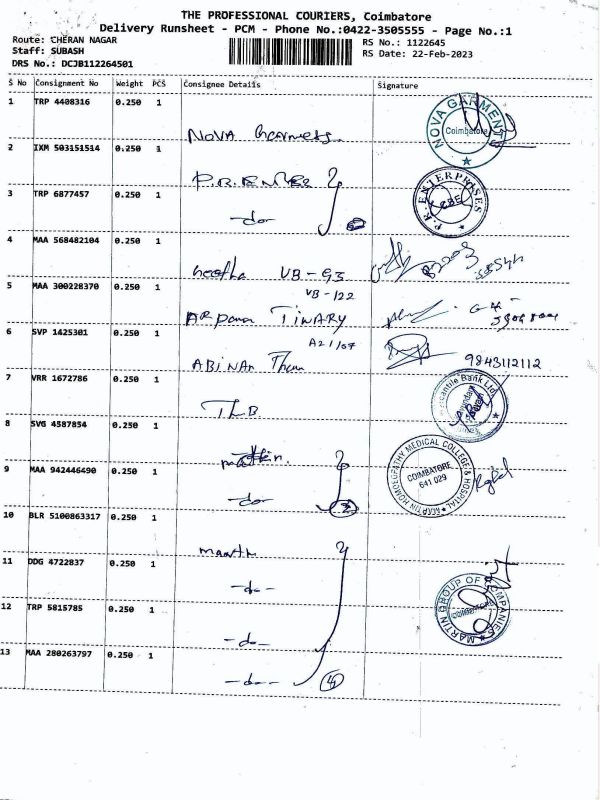 THE PROFESSIONAL COURIERS, Coimbatore
Delivery Runsheet - PCM - Phone No.:0422-3505555 - Page No.:1
Route: CHERAN NAGAR
RS No.: 1122645
Staff: SUBASH
RS Date: 22-Feb-2023
DRS No.: DCJB112264501
S No Consignment No Weight PCS Consignee Details Signature
1 TRP 4408316 0.250 1
NOVA Garments
NOVA GARMENT Coimbatore
2 IXM 503151514 0.250 1
P.R. ENTER
3 TRP 6877457 0.250 1
-do-
P.R. ENTERPRISES CBE
4 MAA 568482104 0.250 1
Geetha VB-93
5 MAA 300228370 0.250 1
VB-122
Arpana TIWARY
6 SVP 1425301 0.250 1
A21/07
ABINAN
9843112112
7 VRR 1672786 0.250 1
TLB
Mercantile Bank Ltd
8 SVG 4587854 0.250 1
martin
9 MAA 942446490 0.250 1
-do-
HOMOEOPATHY MEDICAL COLLEGE & HOSPITAL
COIMBATORE
641 029
10 BLR 5100863317 0.250 1
11 DDG 4722837 0.250 1
-do-
12 TRP 5815785 0.250 1
-do-
MARTIN GROUP OF COMPANIES
13 MAA 280263797 0.250 1
-do- 4